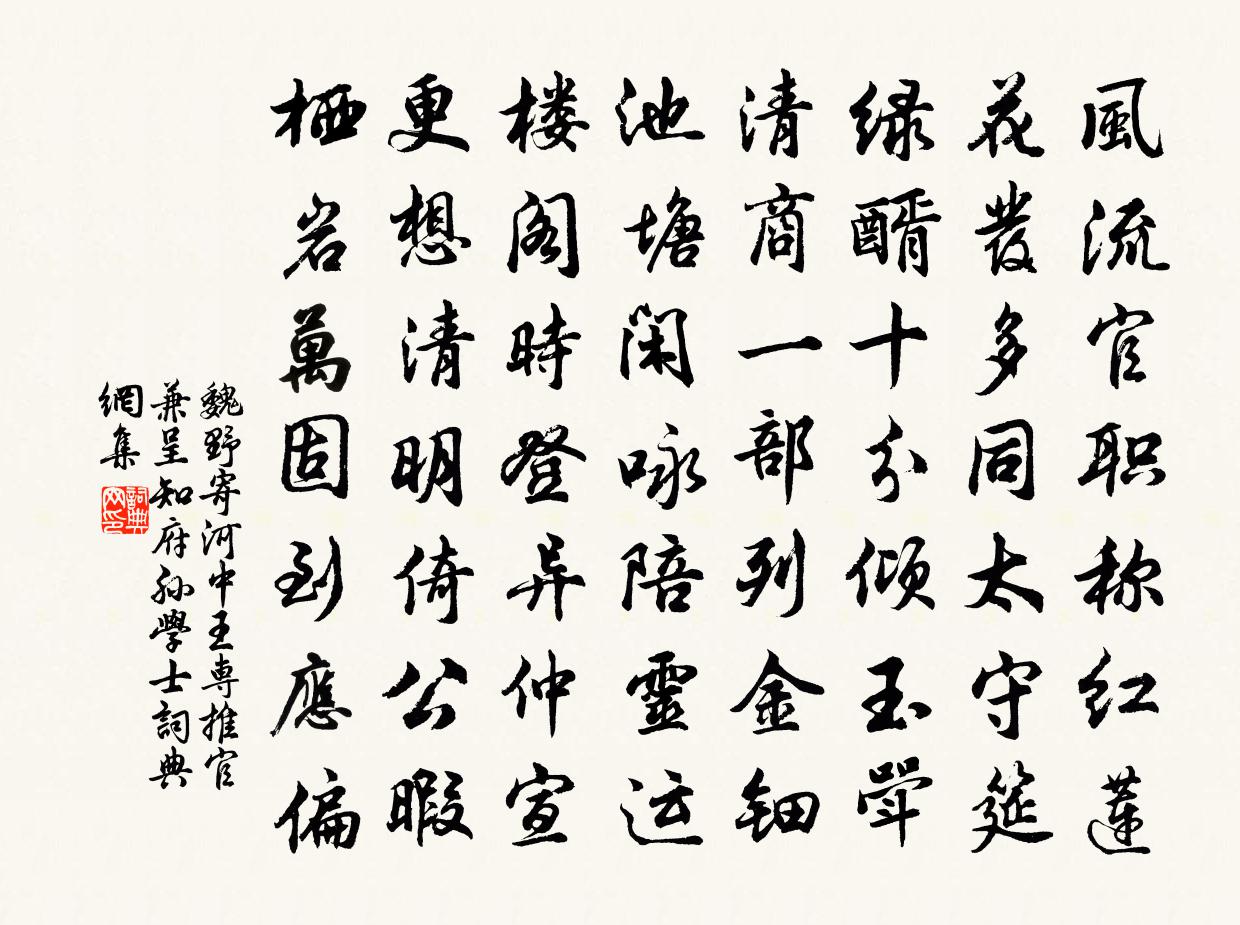 風流官职称红蓮
花發多同太守筵
緑醑十分倾玉斝
清商一部列金钿
池塘闲咏陪靈运
楼阁時登异仲宣
更想清明倚公暇
栖岩萬固到應偏
魏野寄河中王専推官
兼呈知府孙學士詞典
網集
詞典网印